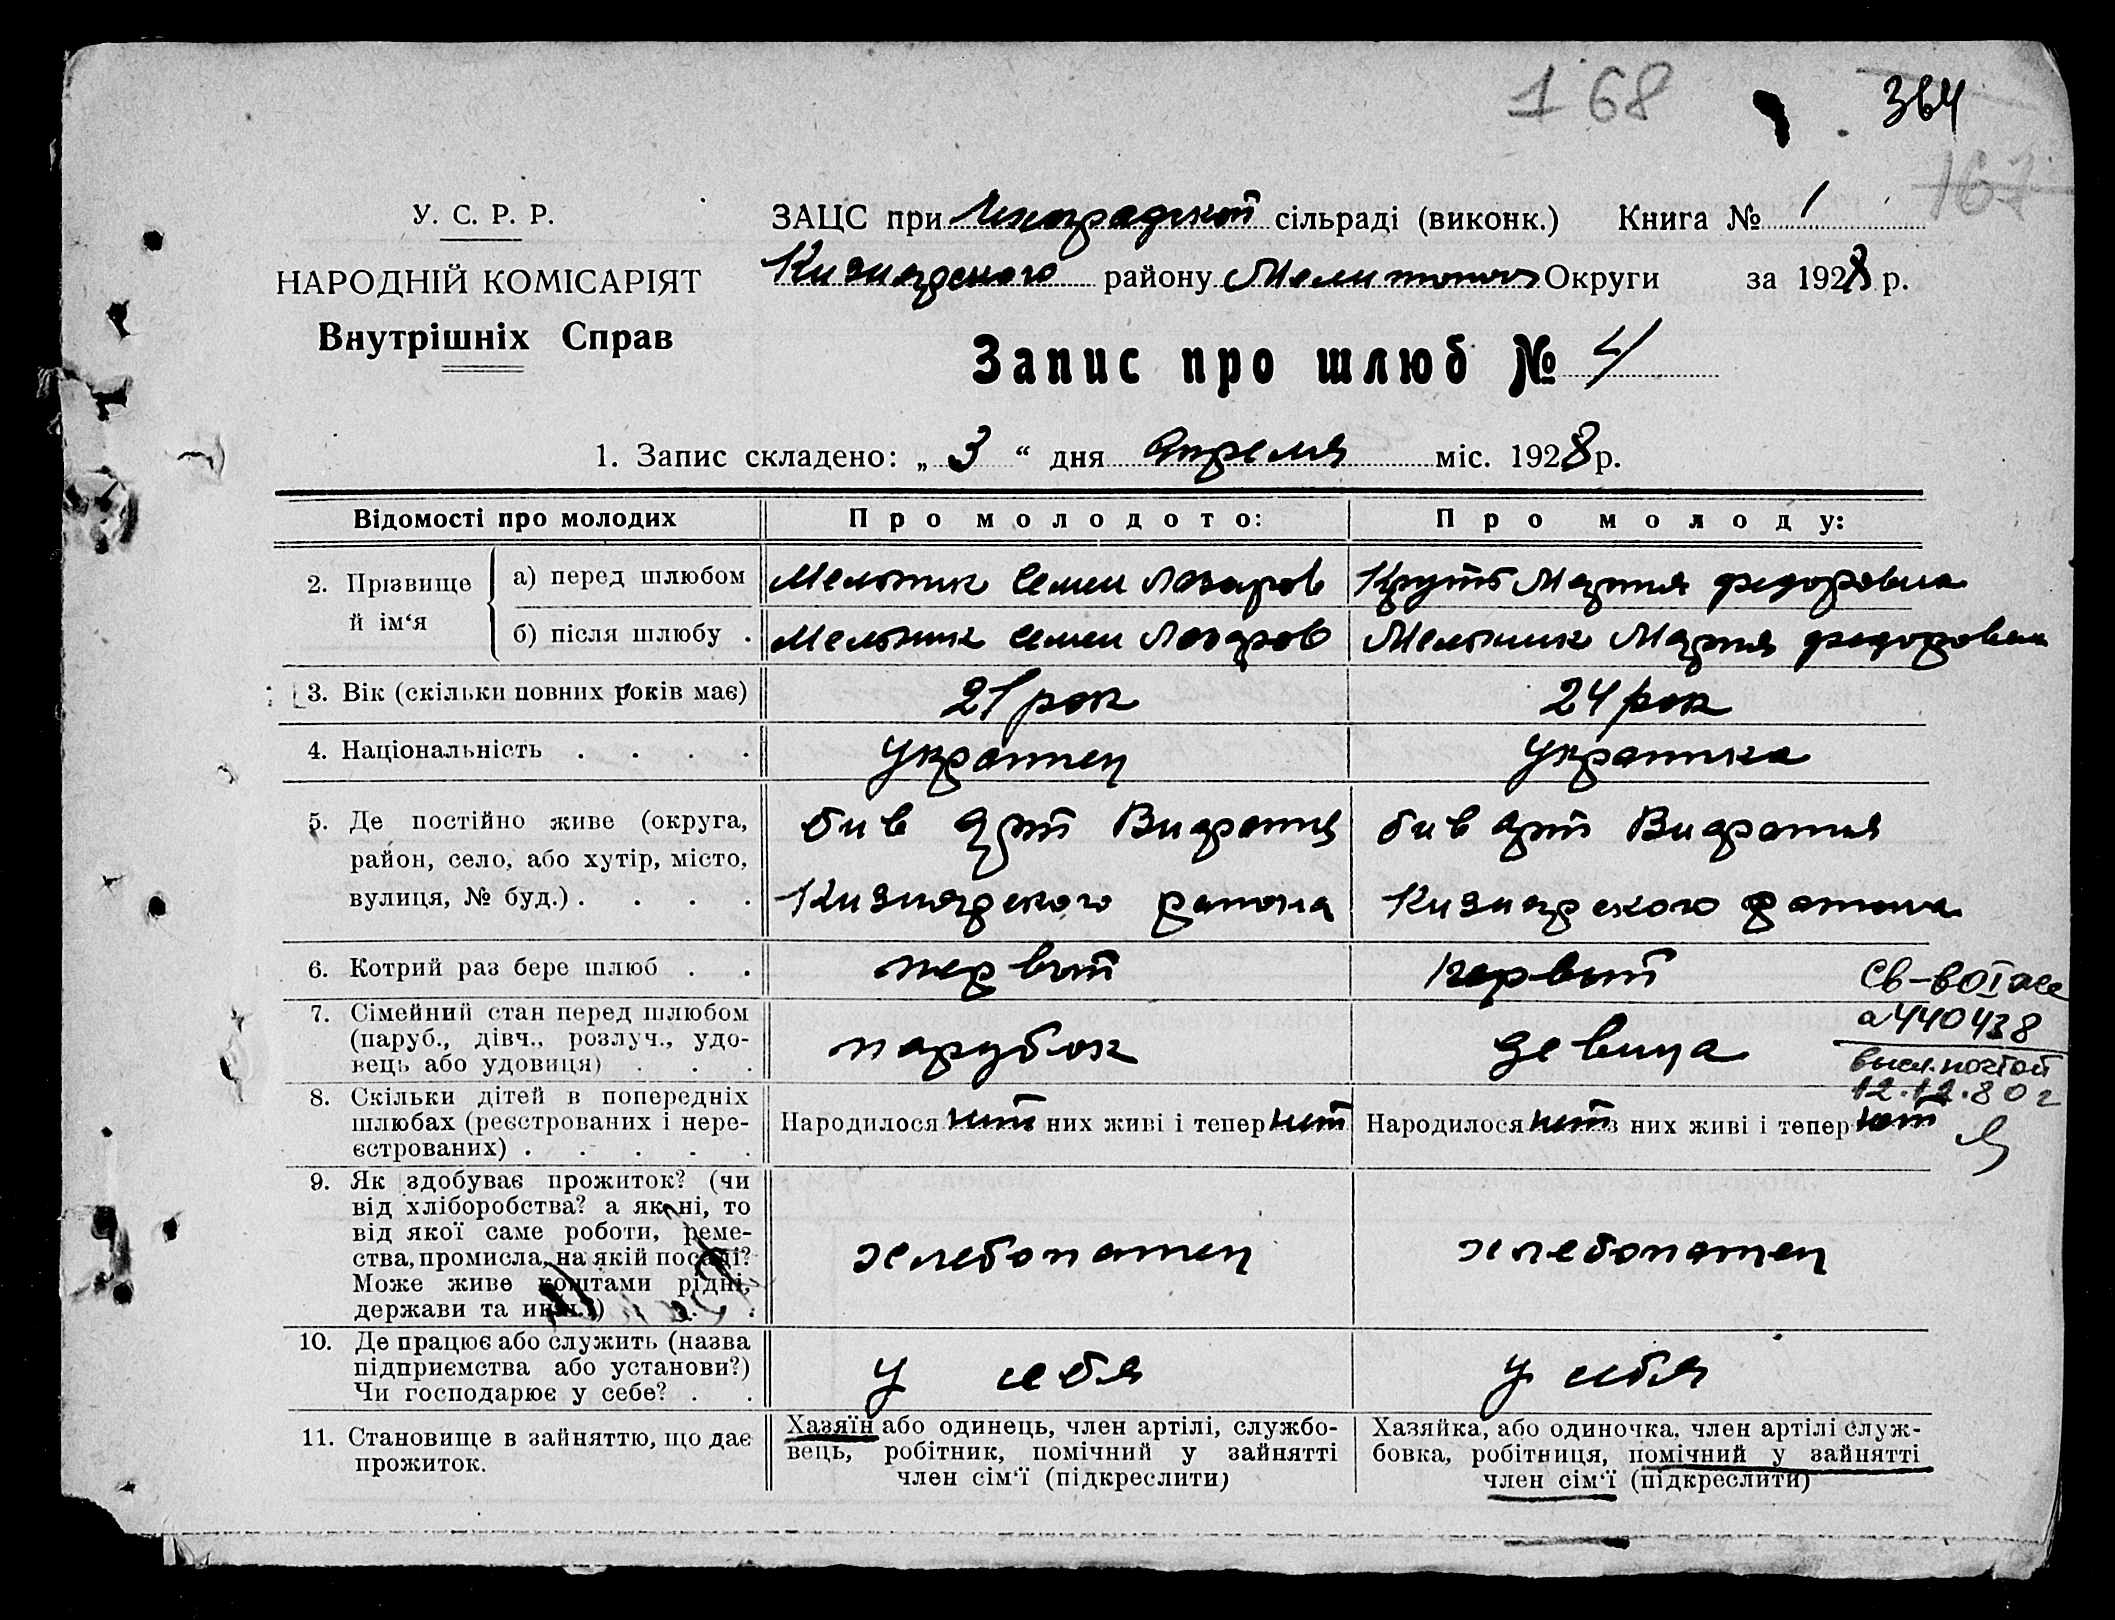 168
364
167
У. С. Р. Р.
НАРОДНІЙ КОМІСАРІЯТ
Внутрішніх Справ
ЗАЦС при сільраді (виконк.) Книга № 1
Кизиярского району Мелитопол Округи за 1928 р.
Запис про шлюб № 4
1. Запис складено: „ 3 “ дня Апреля міс. 1928 р.
Відомості про молодих
Про молодого:
Про молоду:
2. Прізвище й ім‘я
а) перед шлюбом
Мельник Семен Лазаров
Круть Мария Федоровна
б) після шлюбу .
Мельник Семен Лазаров
Мельник Мария Федоровна
3. Вік (скільки повних років має)
21 рок
24 рок
4. Національність . . . .
Украинец
Украинка
5. Де постійно живе (округа,
район, село, або хутір, місто,
вулиця, № буд.) . . . .
Кизиярского раиона
Кизиярского раиона
6. Котрий раз бере шлюб . .
первый
первый
7. Сімейний стан перед шлюбом
(паруб., дівч., розлуч., удо-
вець або удовиця) . . .
парубок
девица
8. Скільки дітей в попередніх
шлюбах (реєстрованих і нере-
єстрованих) . . . . .
Народилося нит них живі і тепер нит
Народилося нит з них живі і тепер нит
9. Як здобуває прожиток? (чи
від хліборобства? а як ні, то
від якої саме роботи, реме-
ства, промисла, на якій посаді?
Може живе коштами рідні,
держави та инш.)
хлебопашец
хлебопашец
10. Де працює або служить (назва
підприємства або установи?)
Чи господарює у себе? . .
у себя
у себя
11. Становище в зайняттю, що дає
прожиток.
Хазяїн або одинець, член артілі, службо-
вець, робітник, помічний у зайнятті
член сім‘ї (підкреслити)
Хазяйка, або одиночка, член артілі служ-
бовка, робітниця, помічний у зайнятті
член сім‘ї (підкреслити)
440438
высл. почтой
12.12.80 г